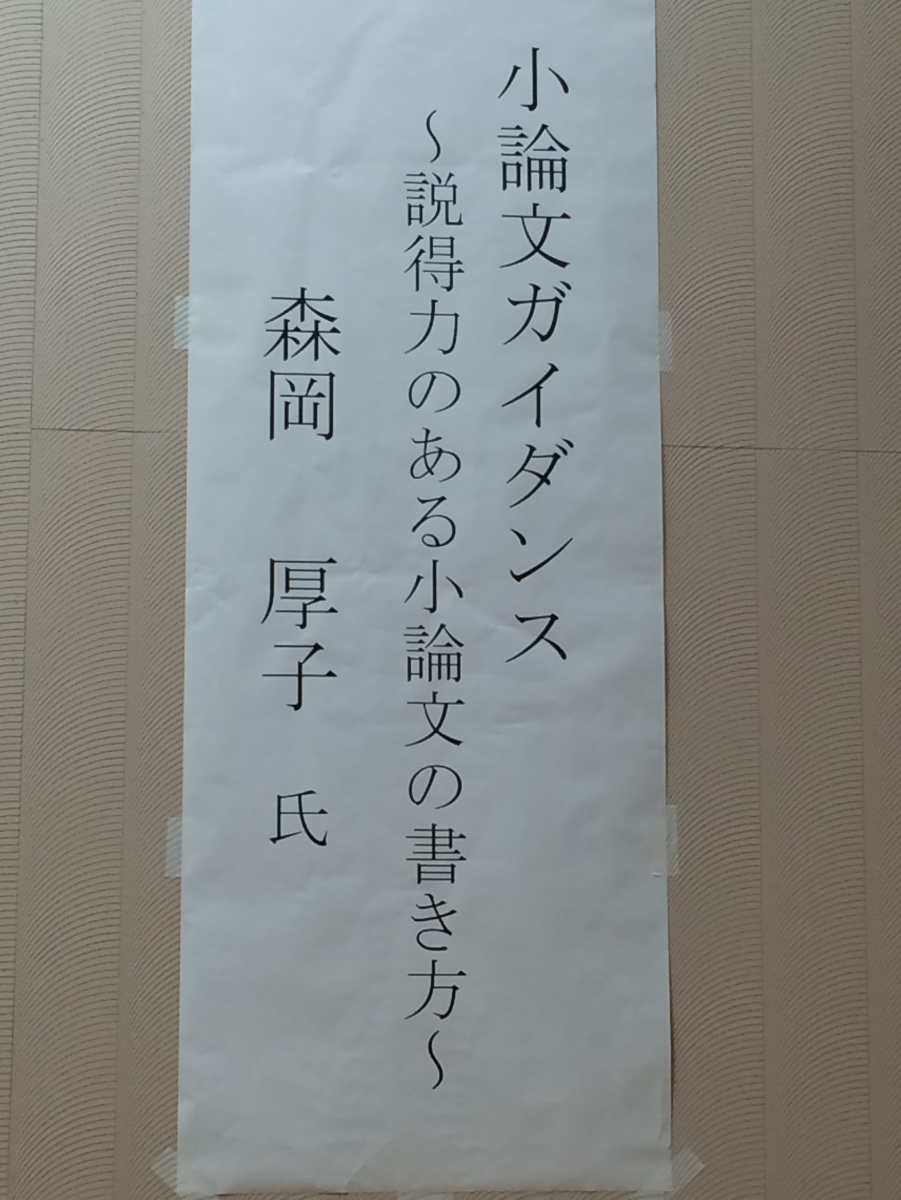 小論文ガイダンス
～説得力のある小論文の書き方～
森岡　厚子　氏